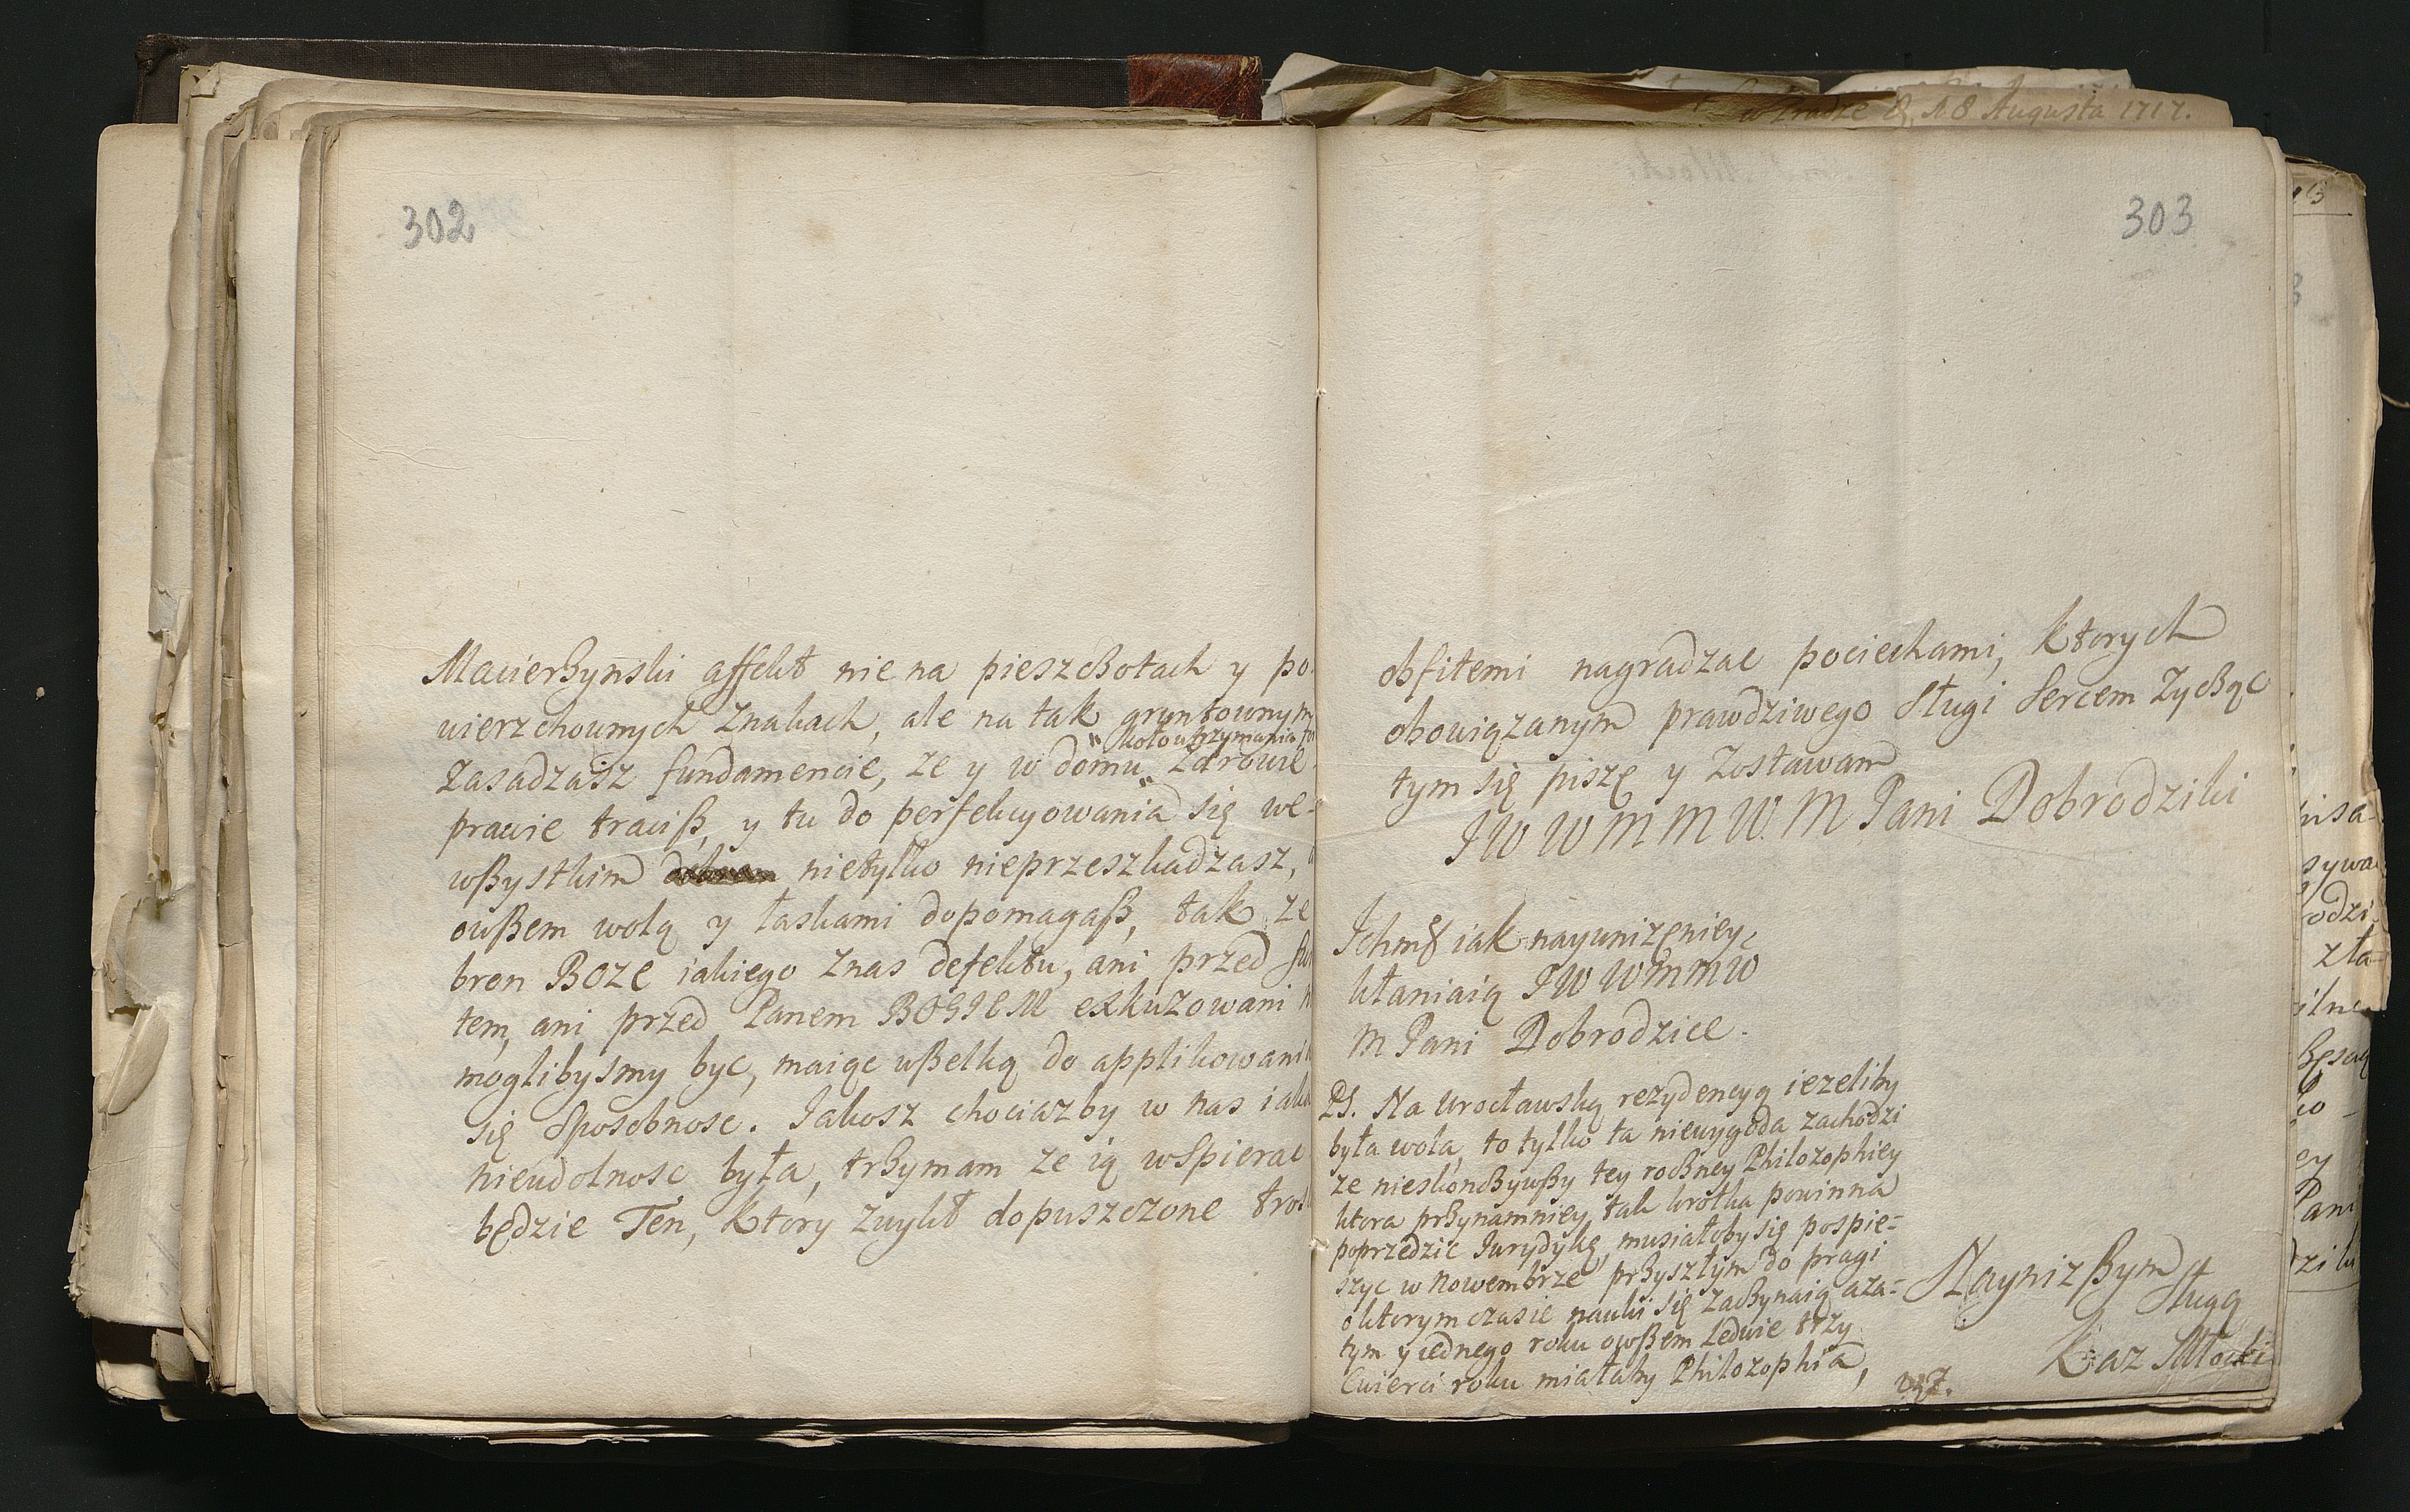 302
Macierzyński affekt nie na pieszczotach y po
wierzchownych znakach, ale na tak gruntownym
koło utrzymania
zasadzasz fundamencie, ze y w domu zdrowie
prawie traciß, y tu do perfekcyowania się we-
wßystkim nietylko nieprzeszkadzasz,
owßem wolą y łaskami dopomagaß, tak ze
bron BOZE iakiego znas defektu, ani przed
tem, ani przed Panem BOGIEM exkuzowani
moglibysmy byc, maiąc wßelką do applikowani
się sposobnosc. Jakosz chociazby w nas iak
nieudolnosc była, trzymam ze ią wspierac
będzie Ten, Ktory zwykł dopuszczone tros
w Pradze d. 18 Augusta 1717.
303
obfitemi nagradzac pociechami, Ktorych
obowiązanym prawdziwego Sługi Sercem Zycząc
tym się piszę y Zostawam
JW W M M W M Pani Dobrodziki
Ichmć iak nayunizęniey
kłaniaią JW W M M W
M Pani Dobrodzice.
PS. Na Wrocławską rezydencyą iezeliby
była wola, to tylko ta niewygoda zachodzi
ze nieskonczywßy tey roczney Philozophiey
ktora przynamniey tak krotka powinna
poprzedzic Jurydykę, musiałoby się pospie-
szyc w Nowembrze przyszłym do Pragi
oktorym czasie nauki się zaczynaią aza-
tym y iednego roku owßem Ledwie trzy
Cwierci roku miałaby Philozophia,
Nayniżßym
Sługą
Kaz Młocki